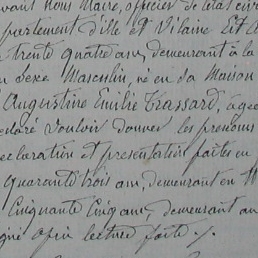 avant nous Maire, officier de l'état civil
partement d'Ille et Vilaine Est
trente quatre ans, demeurant à la
sexe Masculin, né en sa Maison
Augustine Emilie Trassard, agée
éclaré vouloir donner les prénoms
éclaration et présentation faites en
quarante trois ans, demeurant en
Cinquante Cinq ans, demeurant au
gné après lecture faite ./.